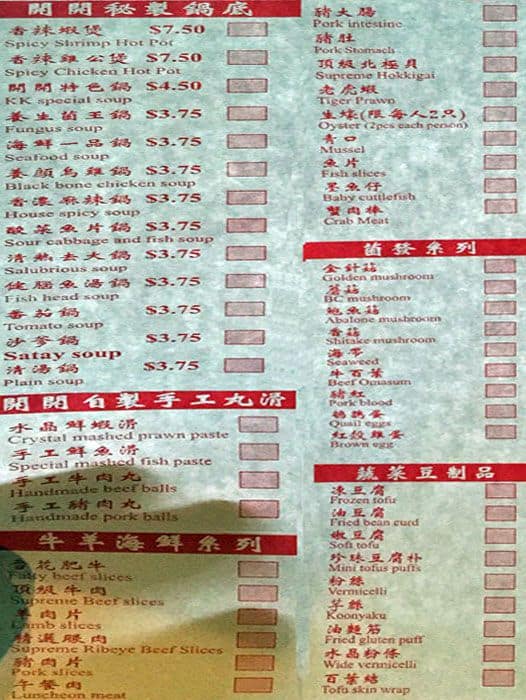 開開秘製鍋底
香辣蝦煲 $7.50
Spicy Shrimp Hot Pot
香辣雞公煲 $7.50
Spicy Chicken Hot Pot
開開特色鍋 $4.50
KK special soup
養生菌王鍋 $3.75
Fungus soup
海鮮一品鍋 $3.75
Seafood soup
養顏烏雞鍋 $3.75
Black bone chicken soup
香濃麻辣鍋 $3.75
House spicy soup
酸菜魚片鍋 $3.75
Sour cabbage and fish soup
清熱去火鍋 $3.75
Salubrious soup
健腦魚湯鍋 $3.75
Fish head soup
番茄鍋 $3.75
Tomato soup
沙爹鍋 $3.75
Satay soup
清湯鍋 $3.75
Plain soup
開開自製手工丸滑
水晶鮮蝦滑
Crystal mashed prawn paste
手工鮮魚滑
Special mashed fish paste
手工牛肉丸
Handmade beef balls
手工豬肉丸
Handmade pork balls
牛羊海鮮系列
雪花肥牛
Fatty beef slices
頂級牛肉
Supreme Beef slices
羊肉片
Lamb slices
精選眼肉
Supreme Ribeye Beef Slices
豬肉片
Pork slices
午餐肉
Luncheon meat
豬大腸
Pork intestine
豬肚
Pork Stomach
頂級北極貝
Supreme Hokkigai
老虎蝦
Tiger Prawn
生蠔(限每人2只)
Oyster (2pcs each person)
青口
Mussel
魚片
Fish slices
墨魚仔
Baby cuttlefish
蟹肉棒
Crab Meat
菌發系列
金針菇
Golden mushroom
蘑菇
BC mushroom
鮑魚菇
Abalone mushroom
香菇
Shitake mushroom
海帶
Seaweed
牛百葉
Beef Omasum
豬紅
Pork blood
鵪鶉蛋
Quail eggs
紅殼雞蛋
Brown egg
蔬菜豆制品
凍豆腐
Frozen tofu
油豆腐
Fried bean curd
嫩豆腐
Soft tofu
珍珠豆腐朴
Mini tofus puffs
粉絲
Vermicelli
芋絲
Koonyaku
油麵筋
Fried gluten puff
水晶粉條
Wide vermicelli
百葉結
Tofu skin wrap